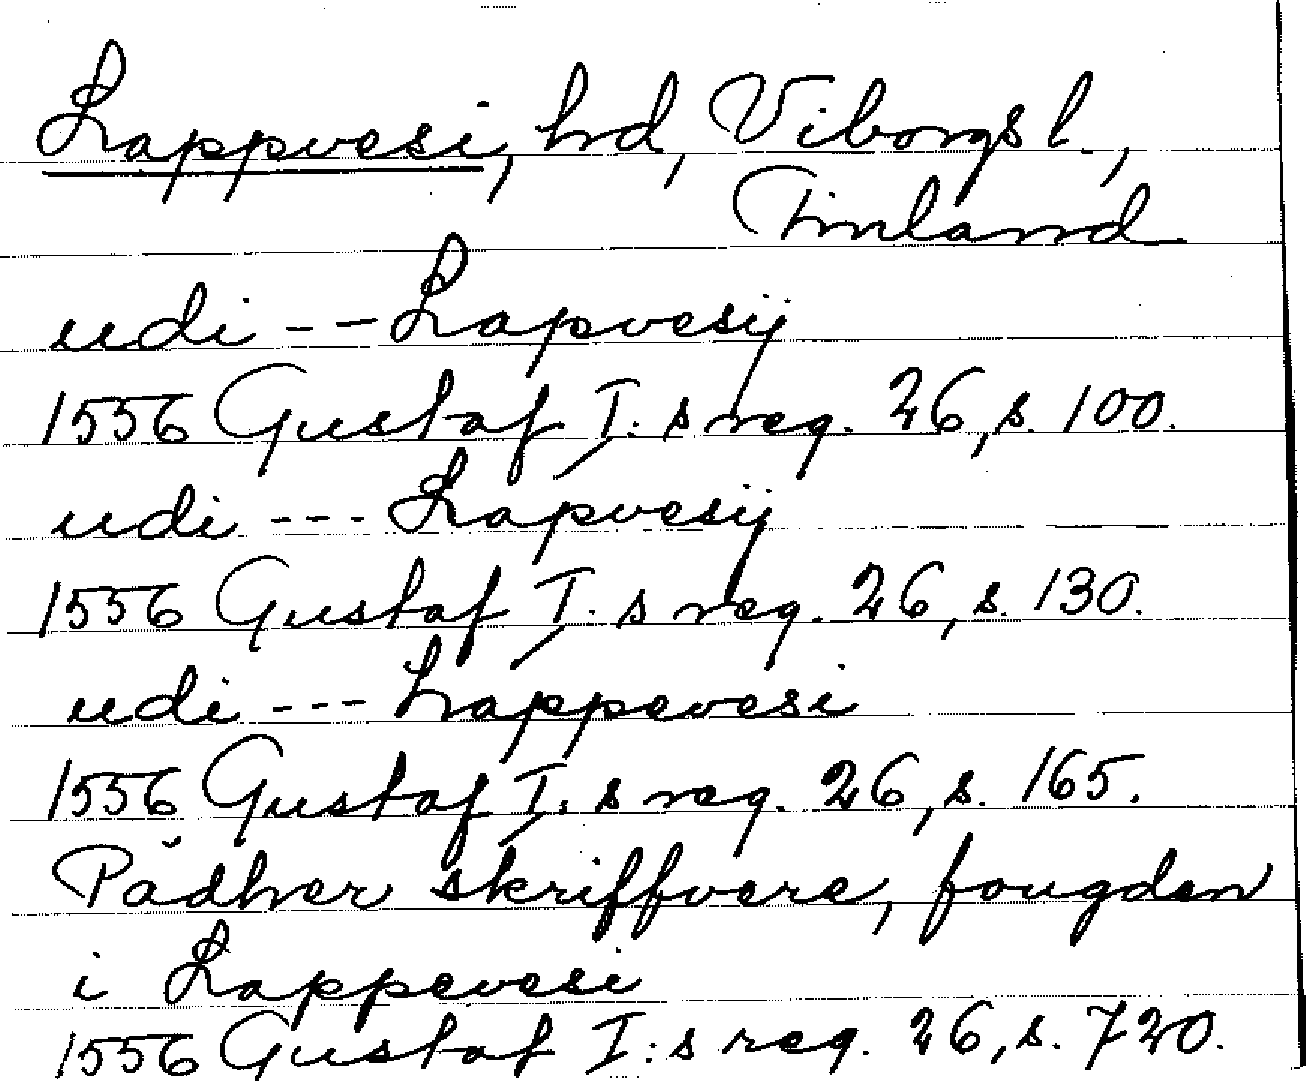 Lappvesi, hd, Viborgs l.,
Finland
udi -- Lapvesij
1556 Gustaf I:s reg. 26, s. 100.
udi --- Lapvesij
1556 Gustaf I:s reg. 26, s. 130.
udi --- Lappevesi
1556 Gustaf I:s reg. 26, s. 165.
Pädher skriffvere, fougden
i Lappevesi
1556 Gustaf I:s reg. 26, s. 720.